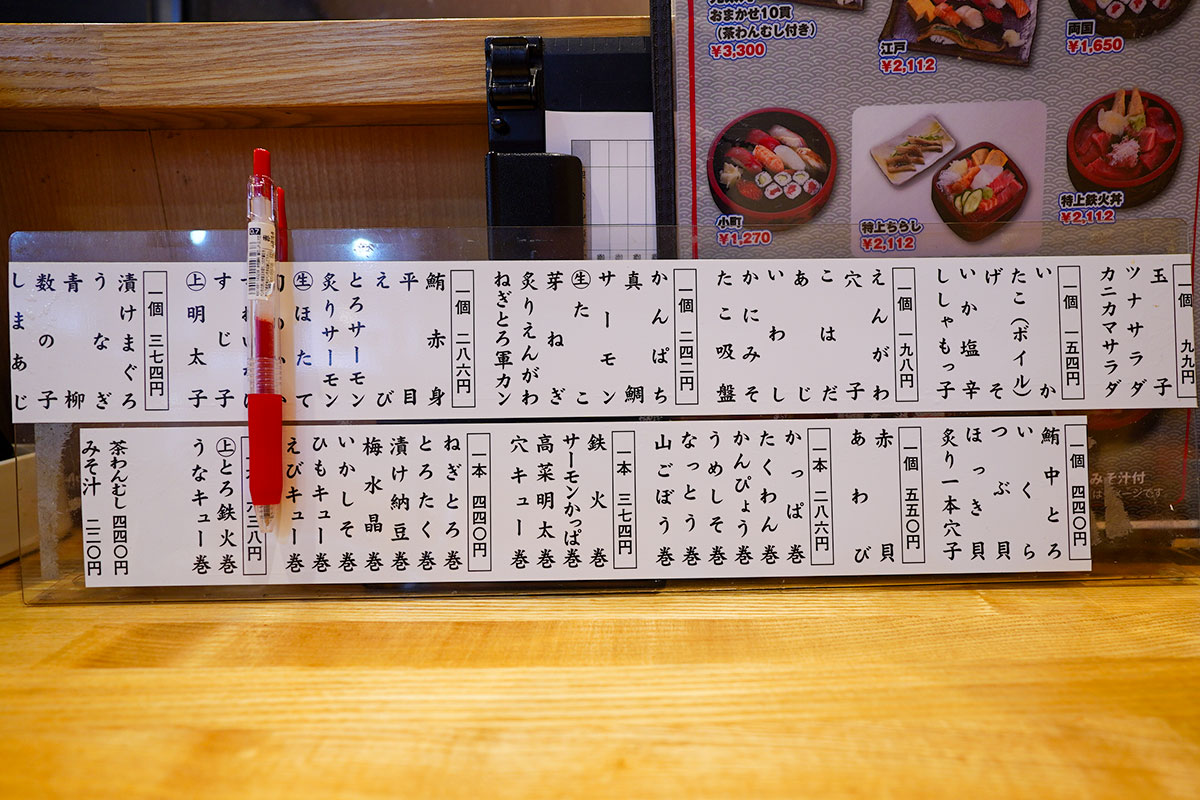 おまかせ10貫
(茶わんむし付き)
¥3,300
江戸
¥2,112
両国
¥1,650
小町
¥1,270
特上ちらし
¥2,112
特上鉄火丼
¥2,112
みそ汁付
一個 九九円
玉子
ツナサラダ
カニカマサラダ
一個 一五四円
いか
たこ(ボイル)
げそ
いか塩辛
ししゃもっ子
一個 一九八円
えんがわ
穴子
こはだ
あじ
いわし
かにみそ
たこ吸盤
一個 二四二円
かんぱち
真鯛
サーモン
㊤たこ
芽ねぎ
炙りえんがわ
ねぎとろ軍カン
一個 二八六円
鮪赤身
平目
えび
とろサーモン
炙りサーモン
ほたて
すじ子
㊤明太子
一個 三七四円
漬けまぐろ
うなぎ
青柳
数の子
しまあじ
一個 四四〇円
鮪中とろ
いくら
つぶ貝
ほっき貝
炙り一本穴子
一個 五五〇円
赤貝
あわび
一本 二八六円
かっぱ巻
たくわん巻
かんぴょう巻
うめしそ巻
なっとう巻
山ごぼう巻
一本 三七四円
鉄火巻
サーモンかっぱ巻
高菜明太巻
穴キュー巻
一本 四四〇円
ねぎとろ巻
とろたく巻
漬け納豆巻
梅水晶巻
いかしそ巻
ひもキュー巻
えびキュー巻
六三八円
㊤とろ鉄火巻
うなキュー巻
茶わんむし 四四〇円
みそ汁 二二〇円
0.7